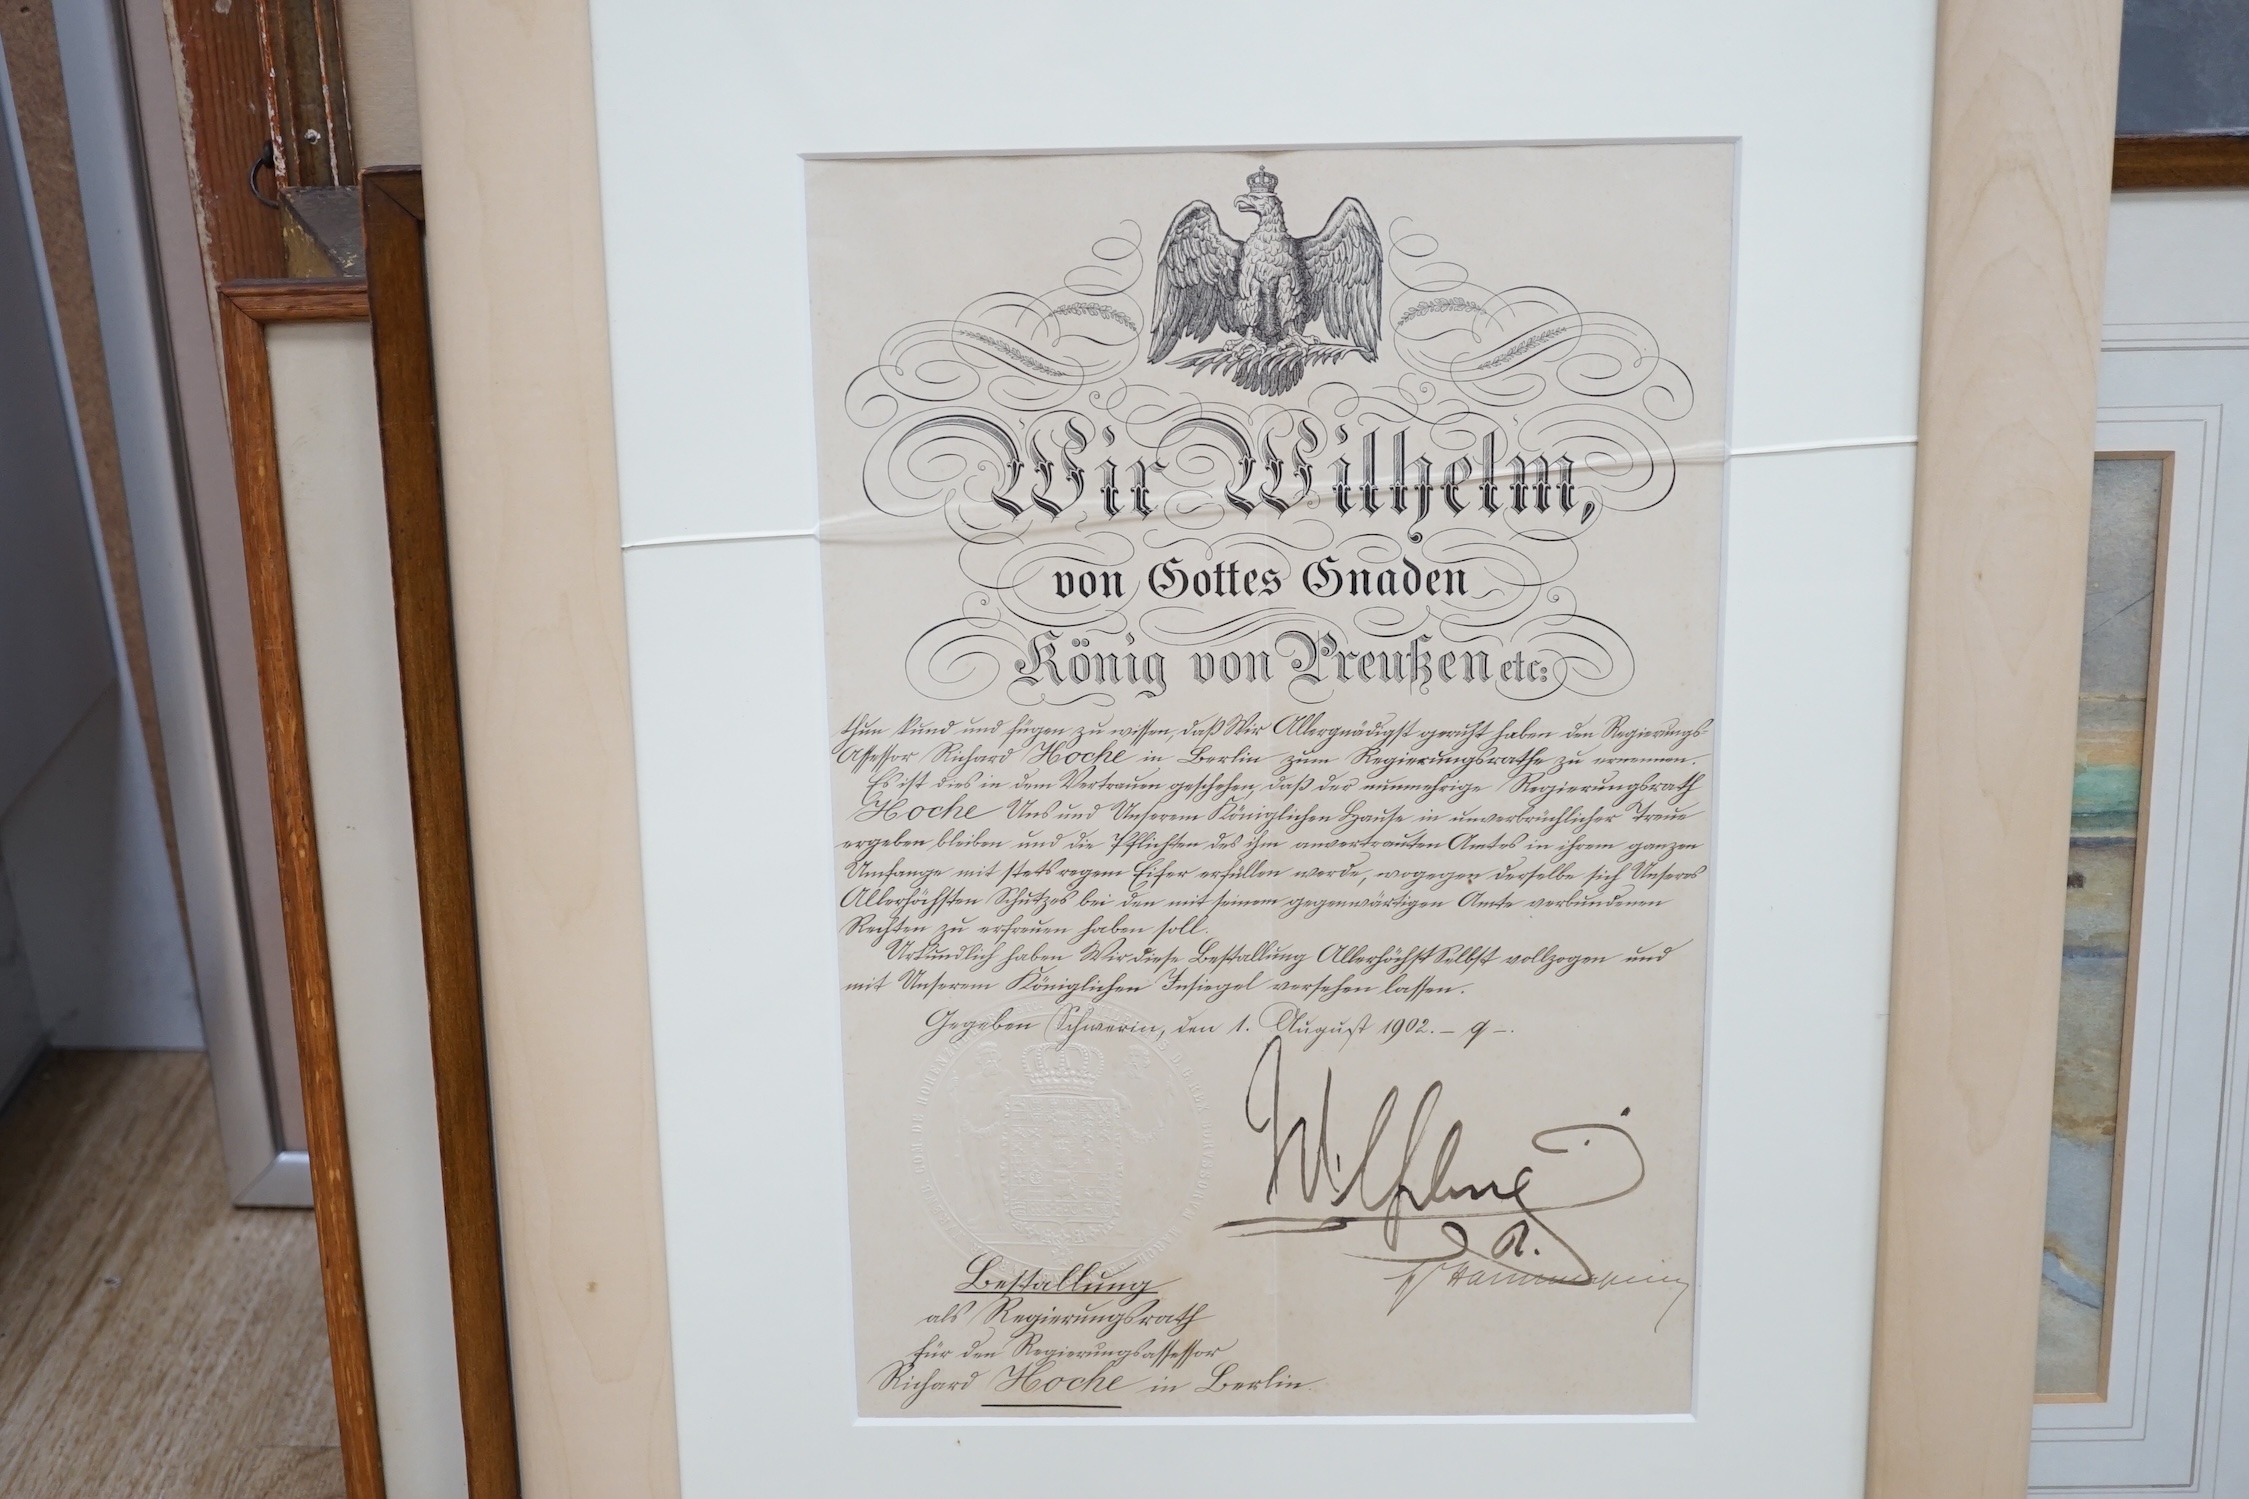 Wir Wilhelm,
von Gottes Gnaden
König von Preußen etc:
thun kund und fügen zu wissen, daß Wir Allergnädigst geruht haben den Regierungs-
Assessor Richard Hoche in Berlin zum Regierungsrathe zu ernennen.
Es ist dies in dem Vertrauen geschehen, daß der nunmehrige Regierungsrath
Hoche Uns und Unserem Königlichen Hause in unverbrüchlicher Treue
ergeben bleiben und die Pflichten des ihm anvertrauten Amtes in ihrem ganzen
Umfange mit stets regem Eifer erfüllen werde, wogegen derselbe sich Unseres
Allerhöchsten Schutzes bei den mit seinem gegenwärtigen Amte verbundenen
Rechten zu erfreuen haben soll.
Urkundlich haben Wir diese Bestallung Allerhöchst Selbst vollzogen und
mit Unserem Königlichen Insiegel versehen lassen.
Gegeben Schwerin, den 1. August 1902. – 9 –.
Wilhelm
R.
Bestallung
als Regierungsrath
für den Regierungsassessor
Richard Hoche in Berlin.